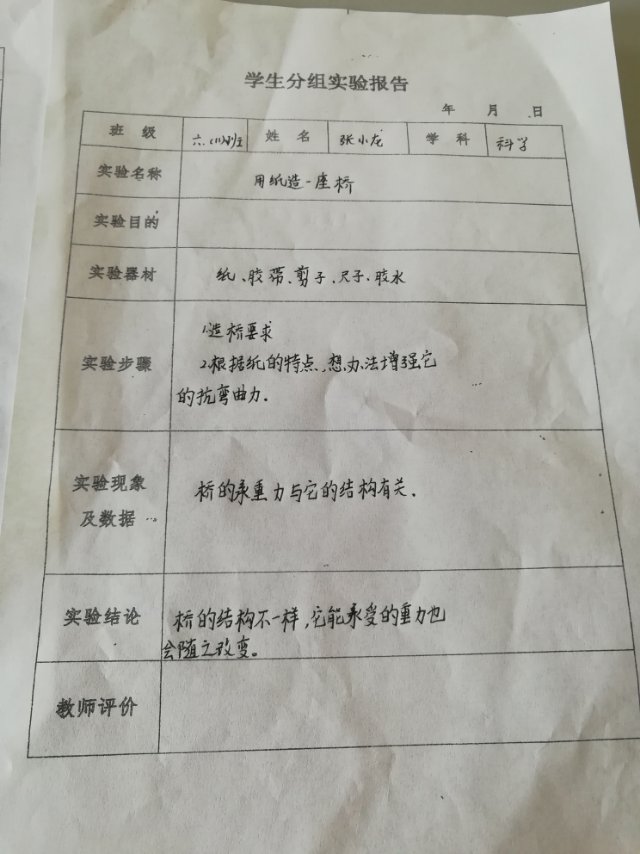 学生分组实验报告
年 月 日
班 级 六.(1)班 姓 名 张小龙 学 科 科学
实验名称 用纸造一座桥
实验目的
实验器材 纸、胶带、剪子、尺子、胶水
实验步骤
1.造桥要求
2.根据纸的特点,想办法增强它
的抗弯曲力.
实验现象
及数据
桥的承重力与它的结构有关.
实验结论
桥的结构不一样,它能承受的重力也
会随之改变。
教师评价